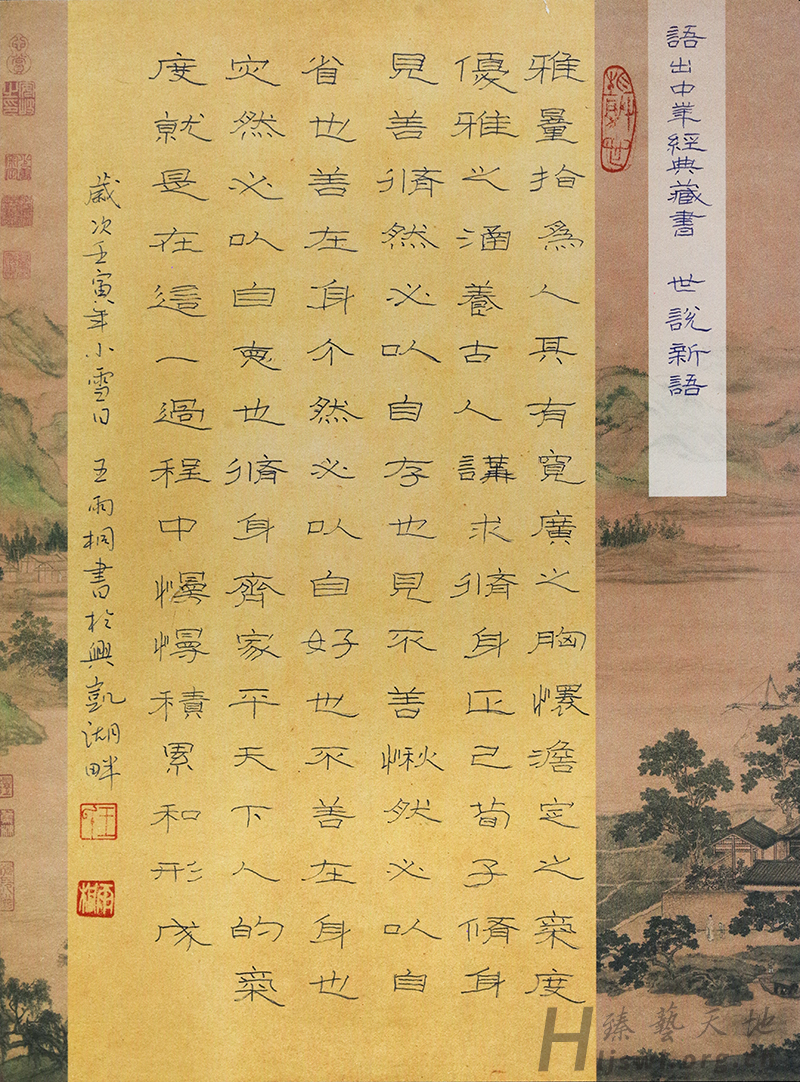 語出中華經典藏書 世說新語
雅量指為人具有寬廣之胸懷澹定之氣度
優雅之涵養古人講求脩身正己荀子脩身
見善脩然必以自存也見不善愀然必以自
省也善在身介然必以自好也不善在身也
災然必以自惡也脩身齊家平天下人的氣
度就是在這一過程中慢慢積累和形成
歲次壬寅年小雪日 王雨桐書於興凱湖畔
雨桐
臻藝天地